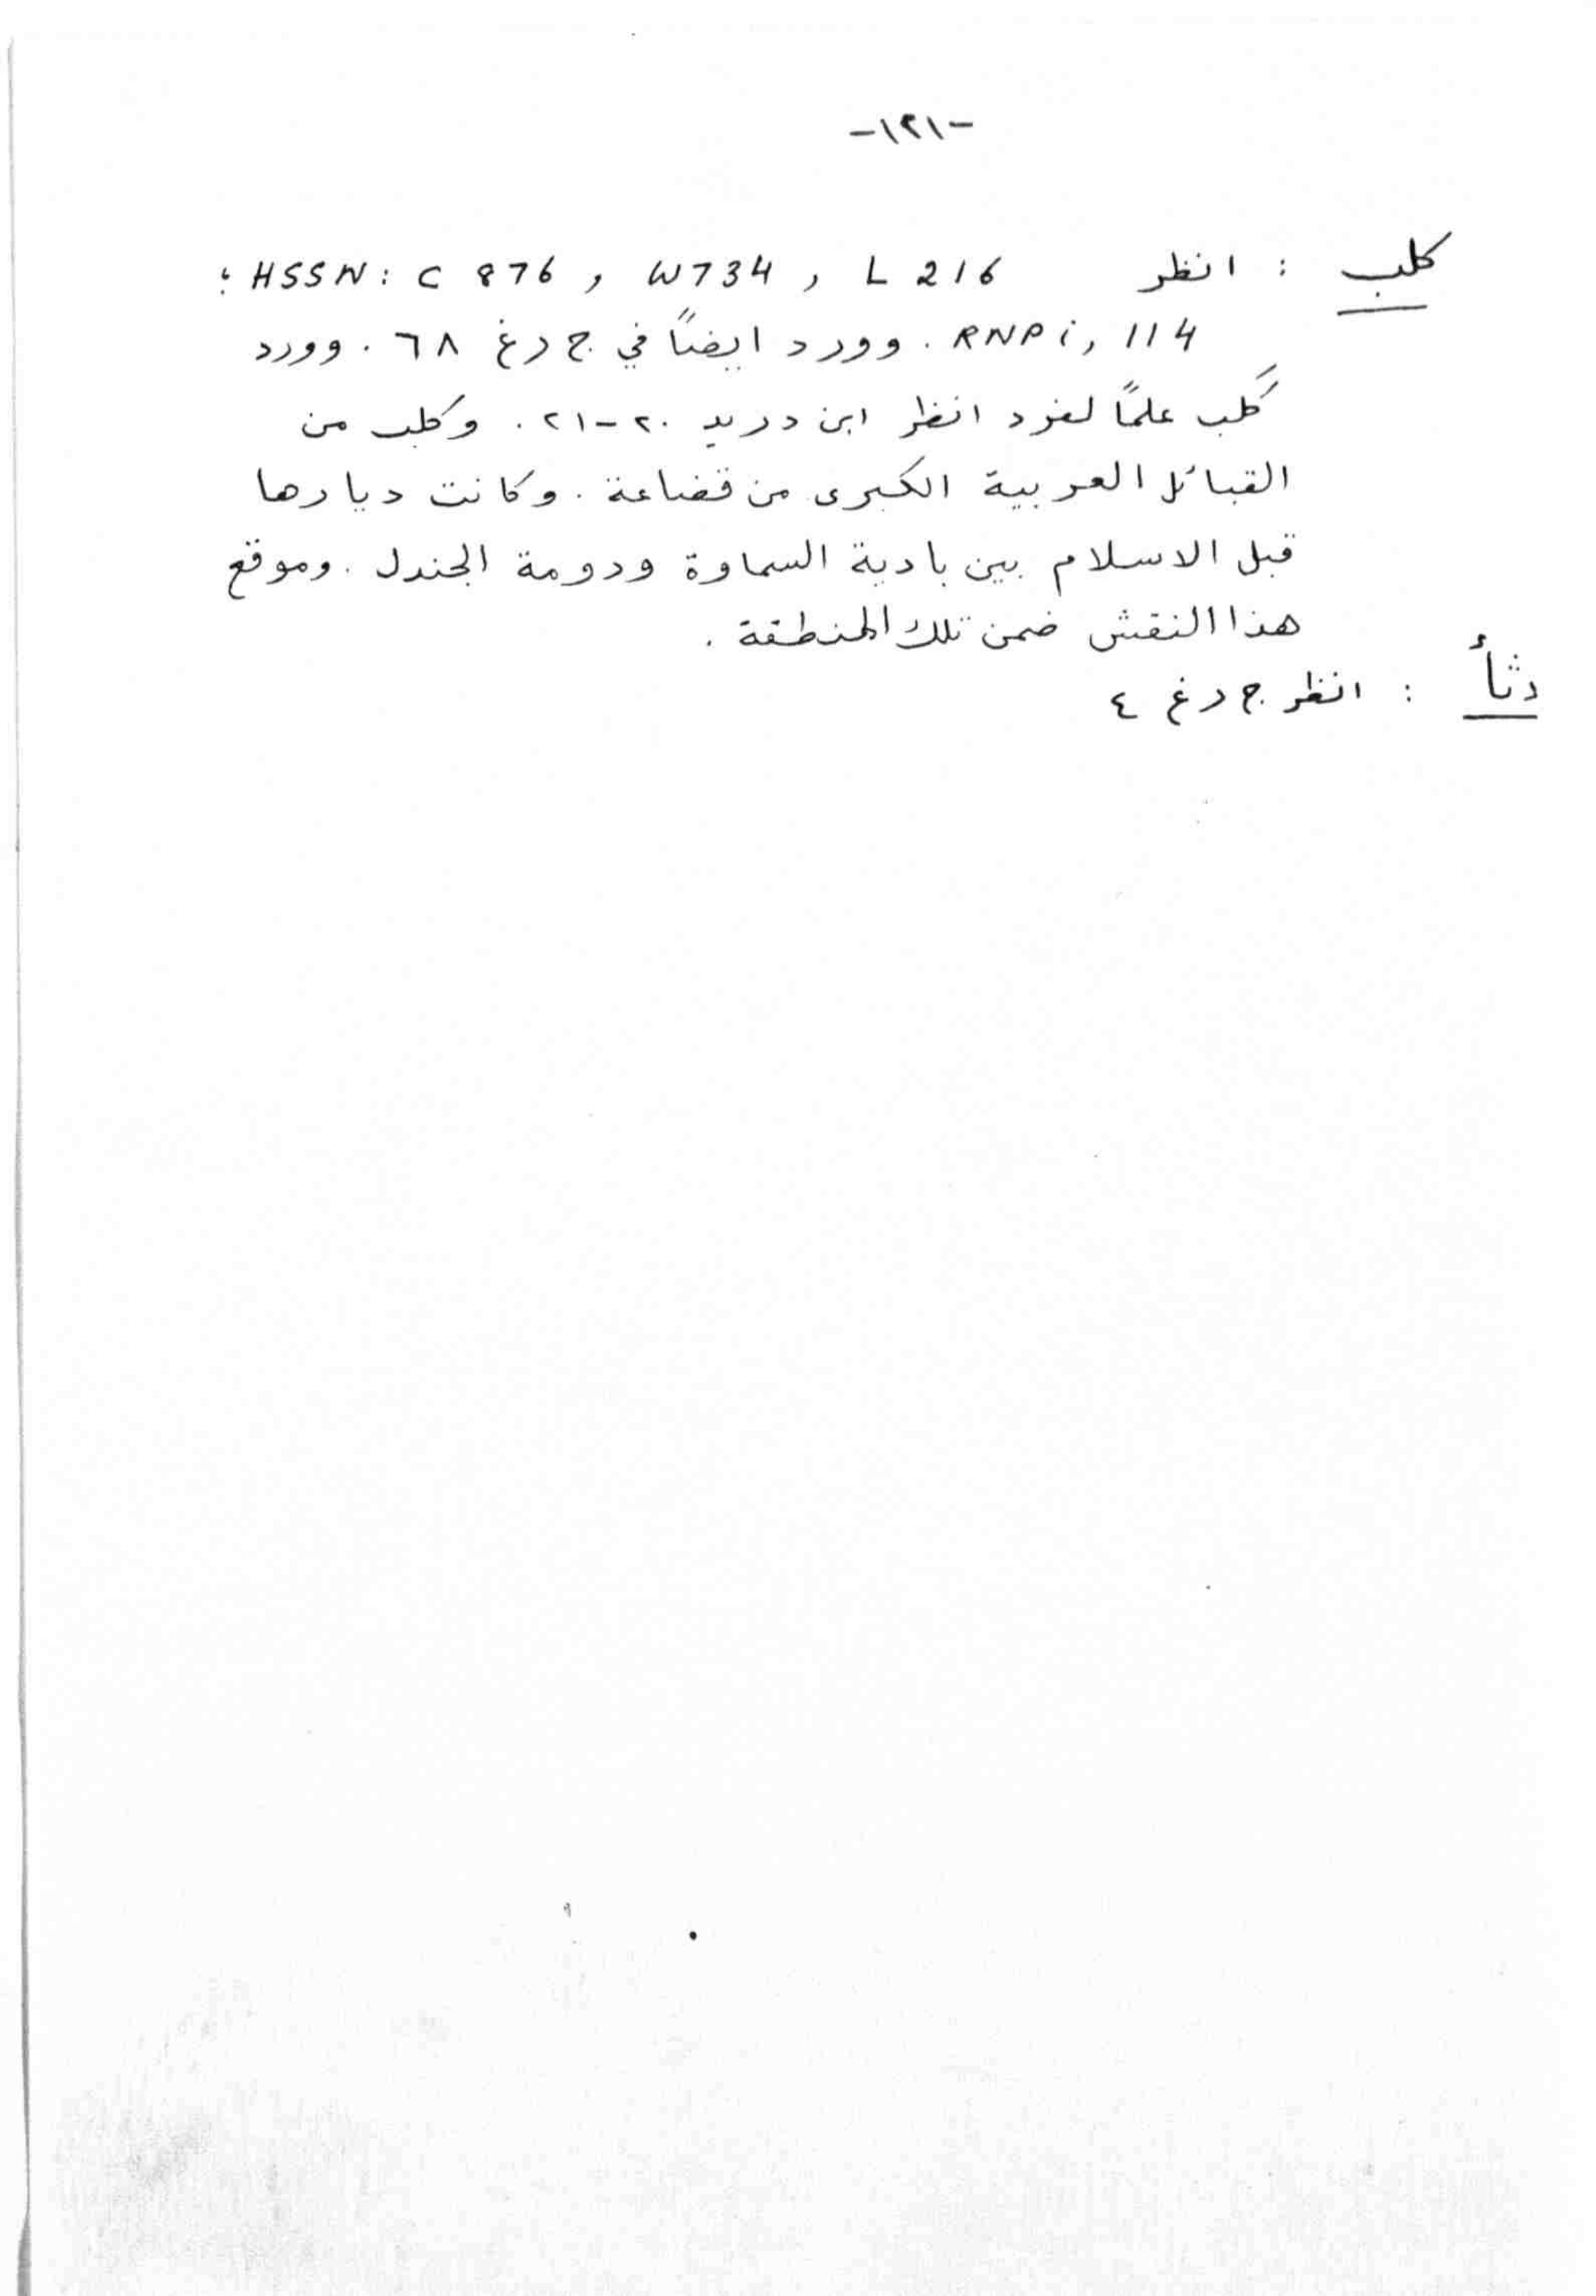 -١٢١-
كلب : انظر HSSN: C 876 , W734 , L 216 ؛
RNP i, 114 . وورد ايضاً في ج د غ ٦٨ . وورد
كلب علماً لفرد انظر ابن دريد ٢٠-٢١ . وكلب من
القبائل العربية الكبرى من قضاعة . وكانت ديارها
قبل الاسلام بين بادية السماوة ودومة الجندل . وموقع
هذا النقش ضمن تلك المنطقة .
دثأ : انظر ج د غ ٤